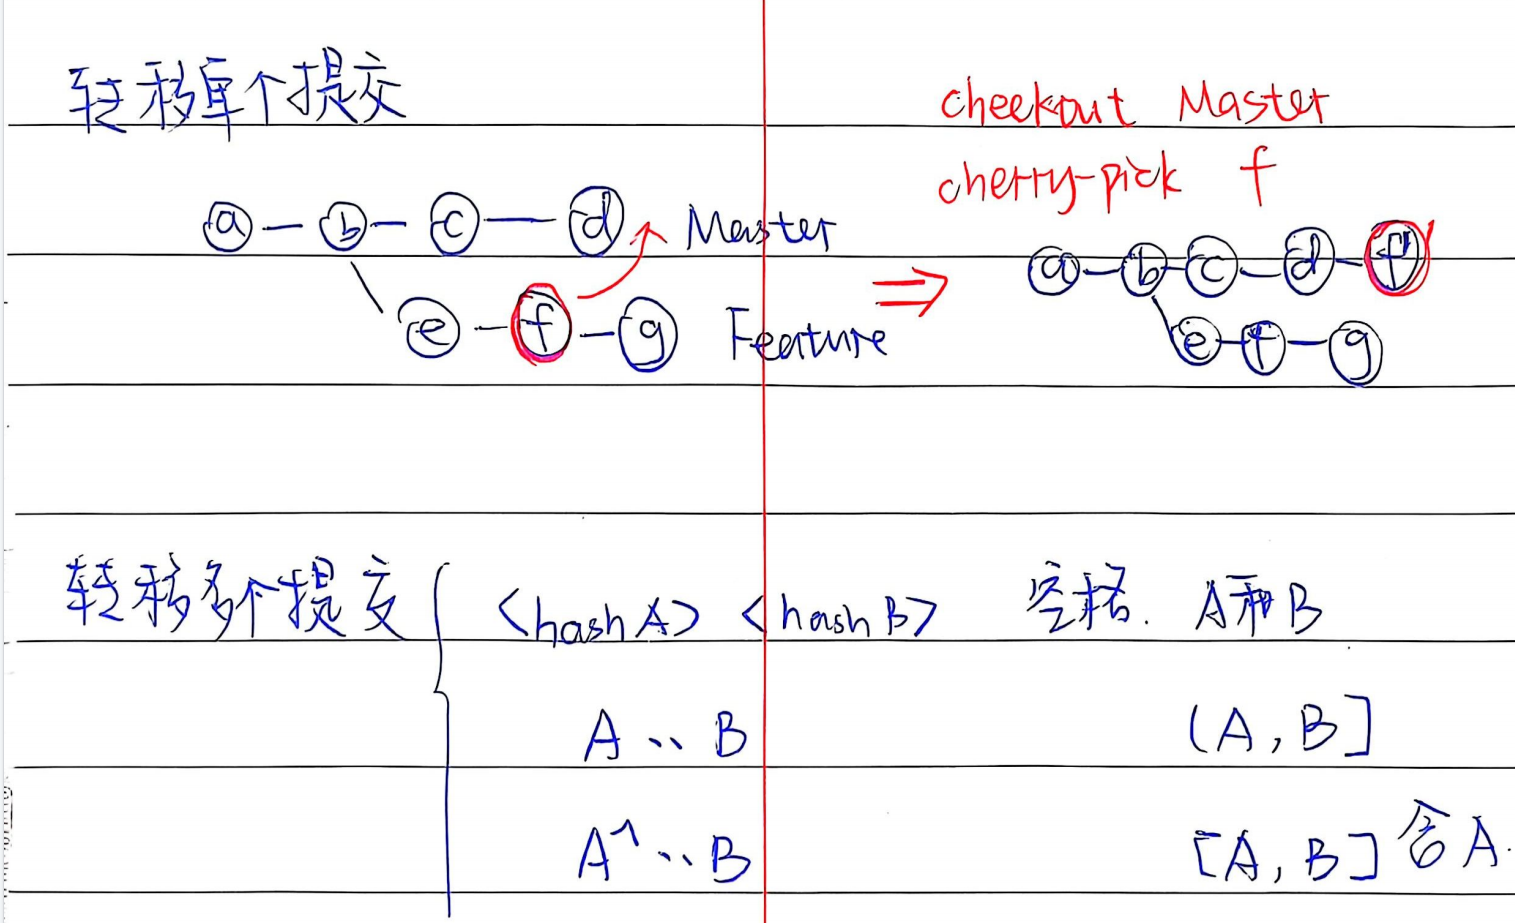 转移单个提交
cheekout Master
cherry-pick f
a — b — c — d Master
e — f — g Feature
⇒
a — b — c — d — f'
e — f — g
转移多个提交 { <hashA> <hashB> 空格. A和B
A .. B (A, B]
A^ .. B [A, B] 含A.